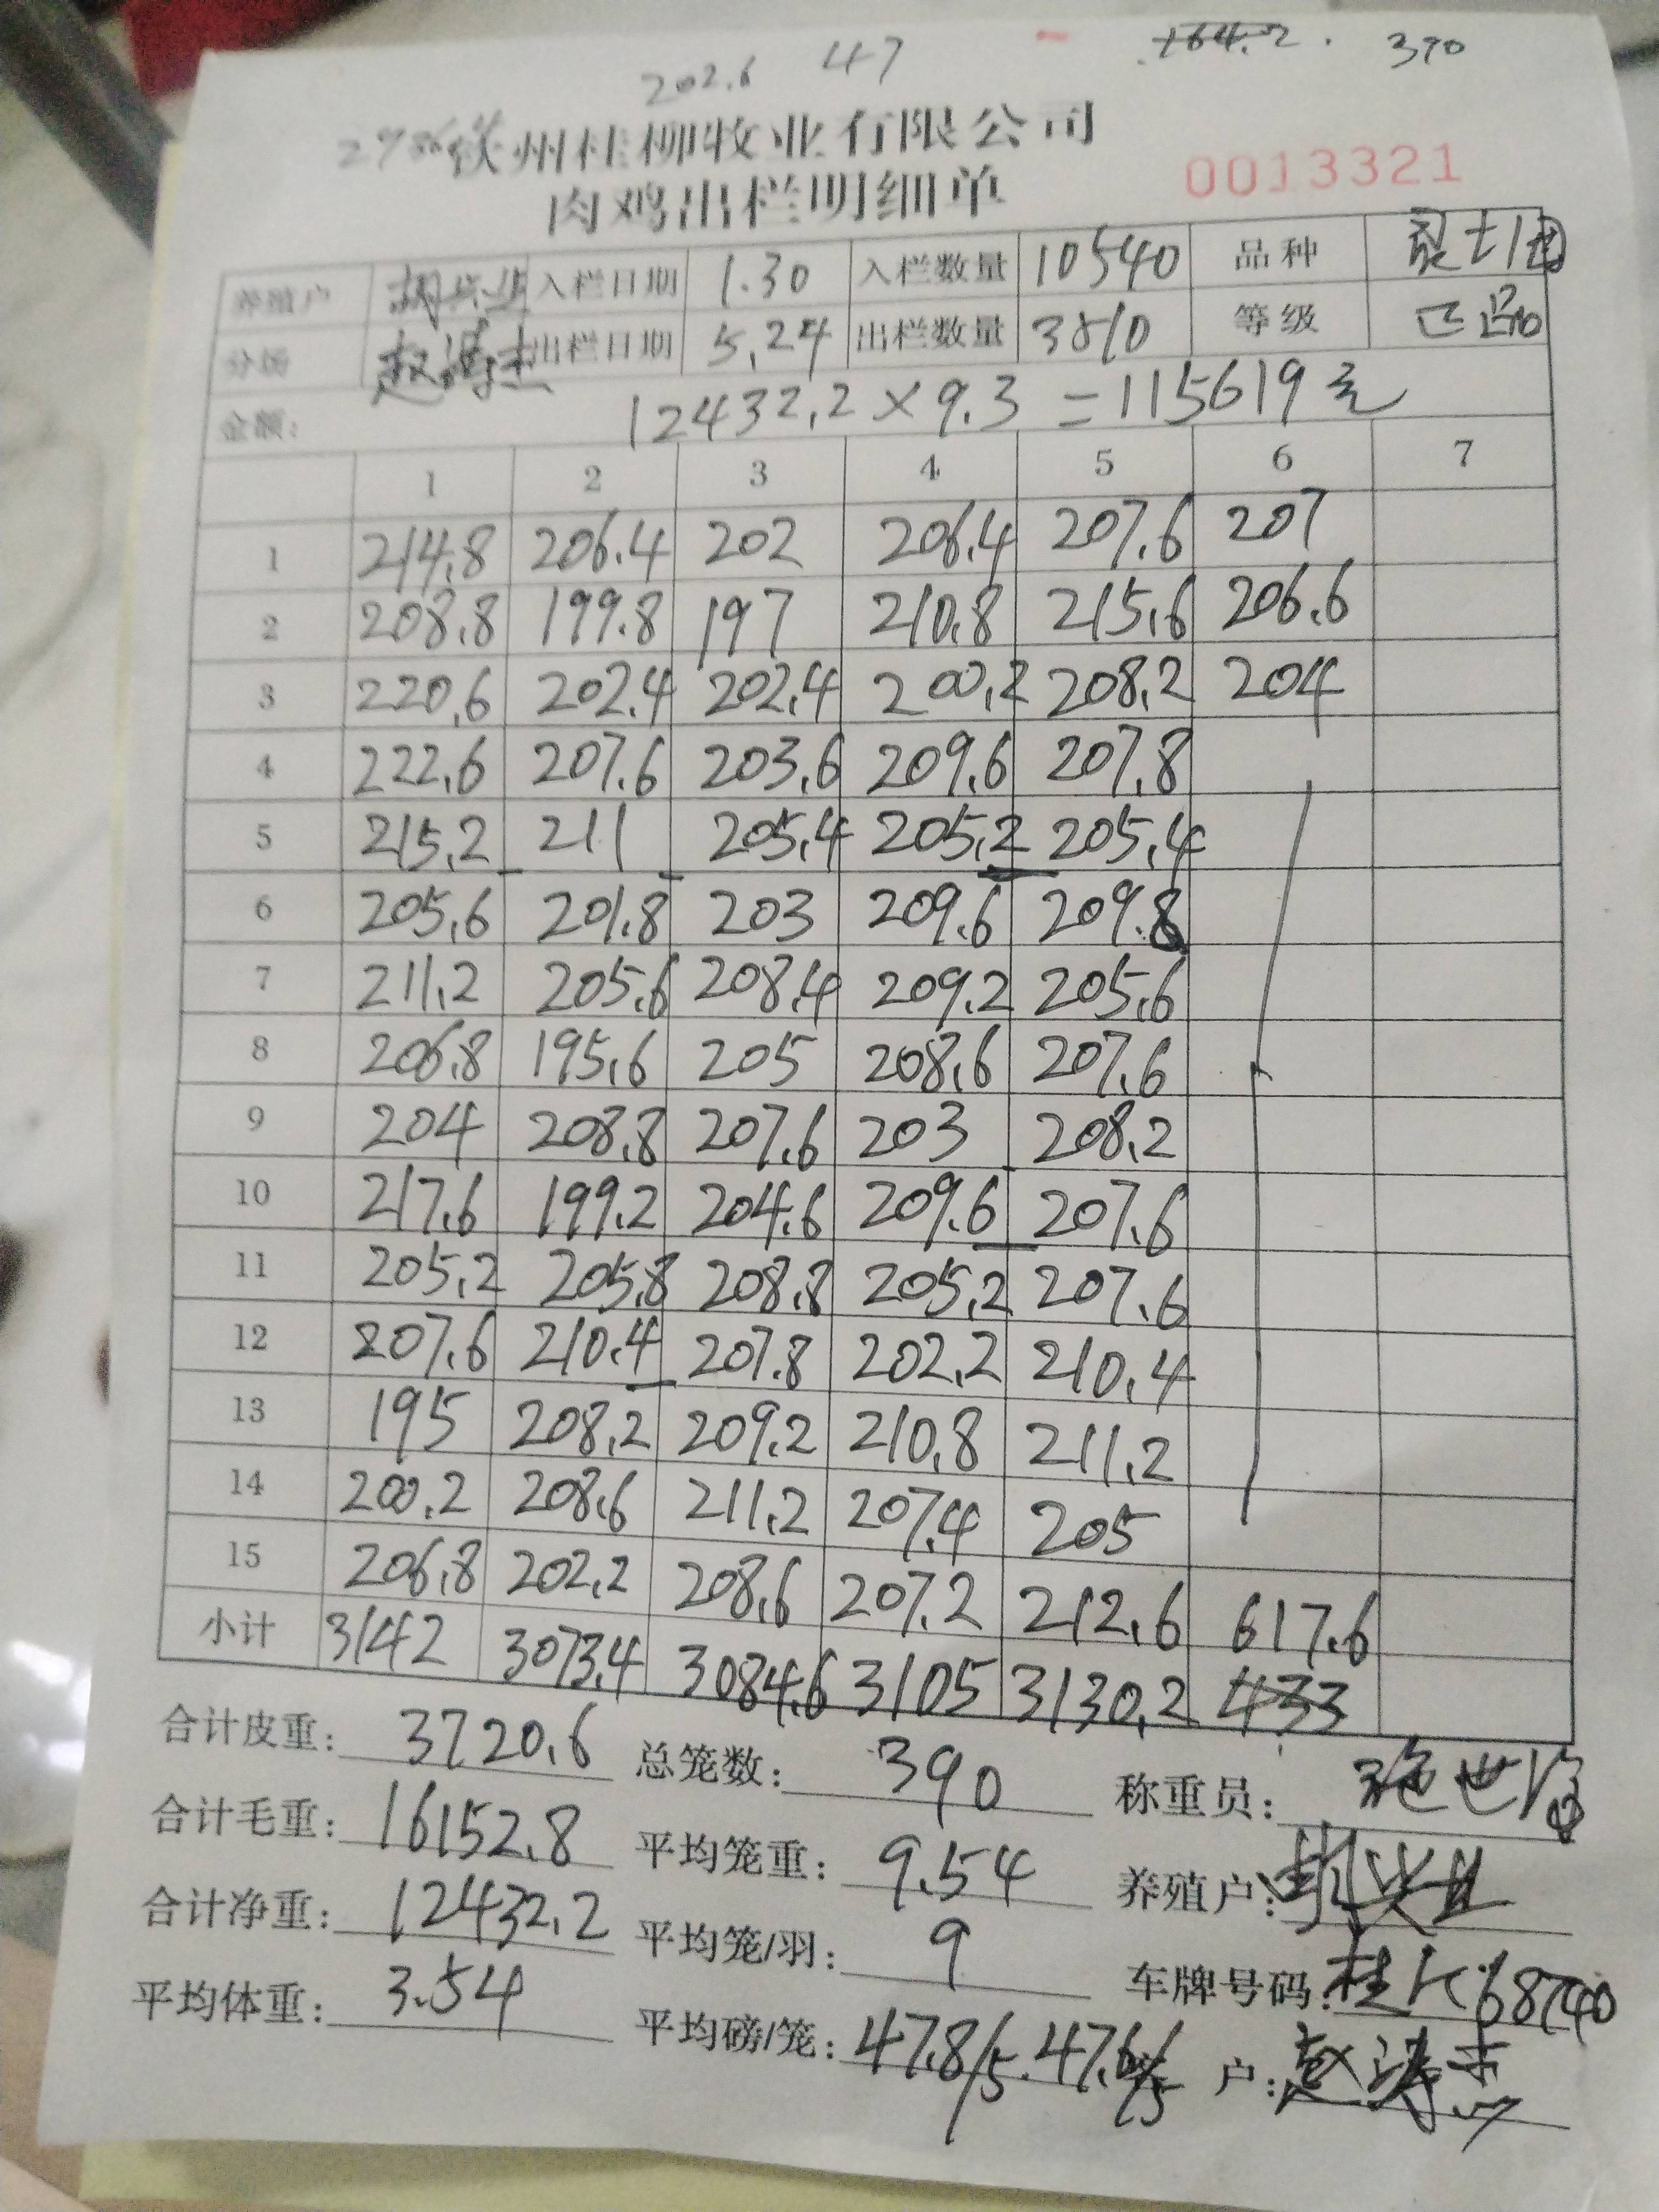 202.6 47 164.2 . 390
钦州桂柳牧业有限公司
肉鸡出栏明细单 0013321
养殖户 入栏日期 1.30 入栏数量 10540 品种
分场 出栏日期 5.24 出栏数量 3510 等级
金额: 12432.2 × 9.3 = 115619元
1 2 3 4 5 6 7
1 214.8 206.4 202 206.4 207.6 207
2 208.8 199.8 197 210.8 215.6 206.6
3 220.6 202.4 202.4 200.2 208.2 204
4 222.6 207.6 203.6 209.6 207.8
5 215.2 211 205.4 205.2 205.4
6 205.6 201.8 203 209.6 209.8
7 211.2 205.6 208.4 209.2 205.6
8 206.8 195.6 205 208.6 207.6
9 204 208.8 207.6 203 208.2
10 217.6 199.2 204.6 209.6 207.6
11 205.2 205.8 208.8 205.2 207.6
12 207.6 210.4 207.8 202.2 210.4
13 195 208.2 209.2 210.8 211.2
14 200.2 208.6 211.2 207.4 205
15 206.8 202.2 208.6 207.2 212.6 617.6
小计 3142 3073.4 3084.6 3105 3130.2 433
合计皮重: 3720.6 总笼数: 390 称重员:
合计毛重: 16152.8 平均笼重: 9.54 养殖户:
合计净重: 12432.2 平均笼/羽: 9 车牌号码:
平均体重: 3.54 平均磅/笼: 47.8/5. 47.6/5 户: